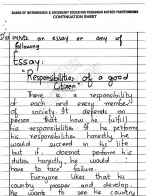 BOARD OF INTERMEDIATE & SECONDARY EDUCATION PESHAWAR KHYBER PAKHTUNKHWA
CONTINUATION SHEET
Write an essay on any of
following.
Essay:
"Responsibilities of a good
Citizen"
There is a responsibility
of each and every member
of society. It defends on
person that how he fulfill
his responsibilities. If he performs
his responsibilities honestly he
would succeed in his life
but if doesnot perform his
duties honestly, he would
have to face failure.
Everyone likes that his
country prosper and develop.
He want to see his country